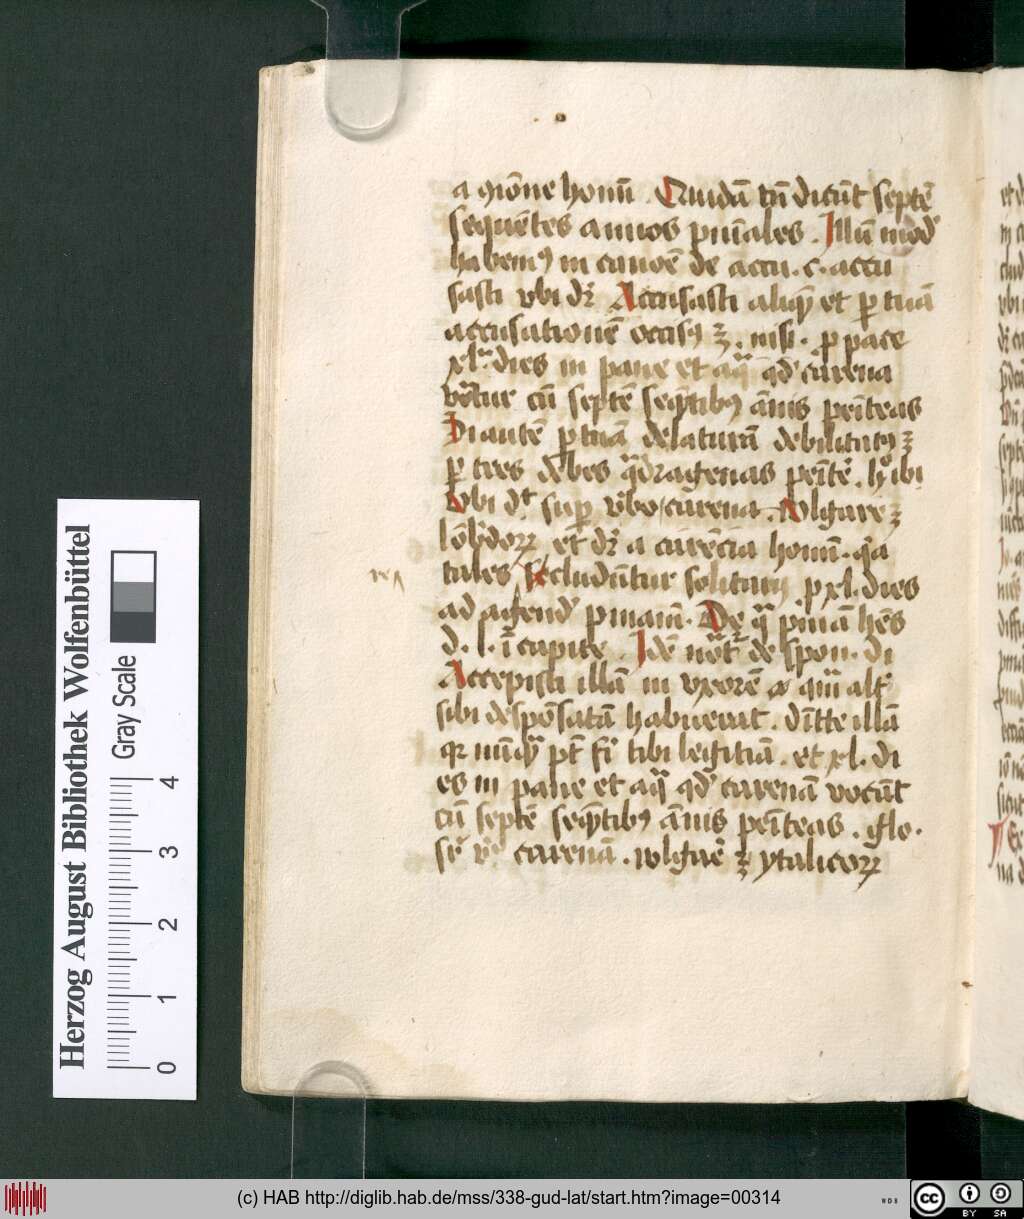 a ɔione hoīm . Quidā tn̄ dicūt septē
sequētes annos pniales . Illū mod᷒
habemꝰ in canōe de accu. c. accu
sasti vbi dr̄ Accusasti aliqꝫ et ꝑ tuā
accusationē occisꝰ ē . nisi . ꝓ pace
xl. dies in pane et aq̄ qd̓ carena
vocatur cū septē seqn̄tibꝰ ānis peniteas
Si autē ꝑ tuā delaturā debilitatꝰ ē
ꝑ tres debes q̄dragenas penitē . h̄ ibi
Vbi dt̄ suꝑ vbo carena . Volgare ē
lōbdoꝝ et dr̄ a carēcia hoīm . qa
tales secludūtur solitarij ꝑ xl. dies
ad agend̓ pniam . De q̄ pniā hēs
d. l. ī capite . Idē nōt̄ de spon. du
Accepisti illā in vxorē quā alt̓
sibi despōsatā habuerat . dimitte illā
qꝛ nūqꝫ pt̄ fi̓ tibi legitiā . et xl. di
es in pane et aq̄ qd̓ carenā vocāt
cū septē seqn̄tibꝰ ānis peniteas . glo.
sr̄ v̓ carenā . volgare ē ytalicoꝝ
Herzog August Bibliothek Wolfenbüttel
Gray Scale
0 1 2 3 4
(c) HAB http://diglib.hab.de/mss/338-gud-lat/start.htm?image=00314
WDB
cc BY SA